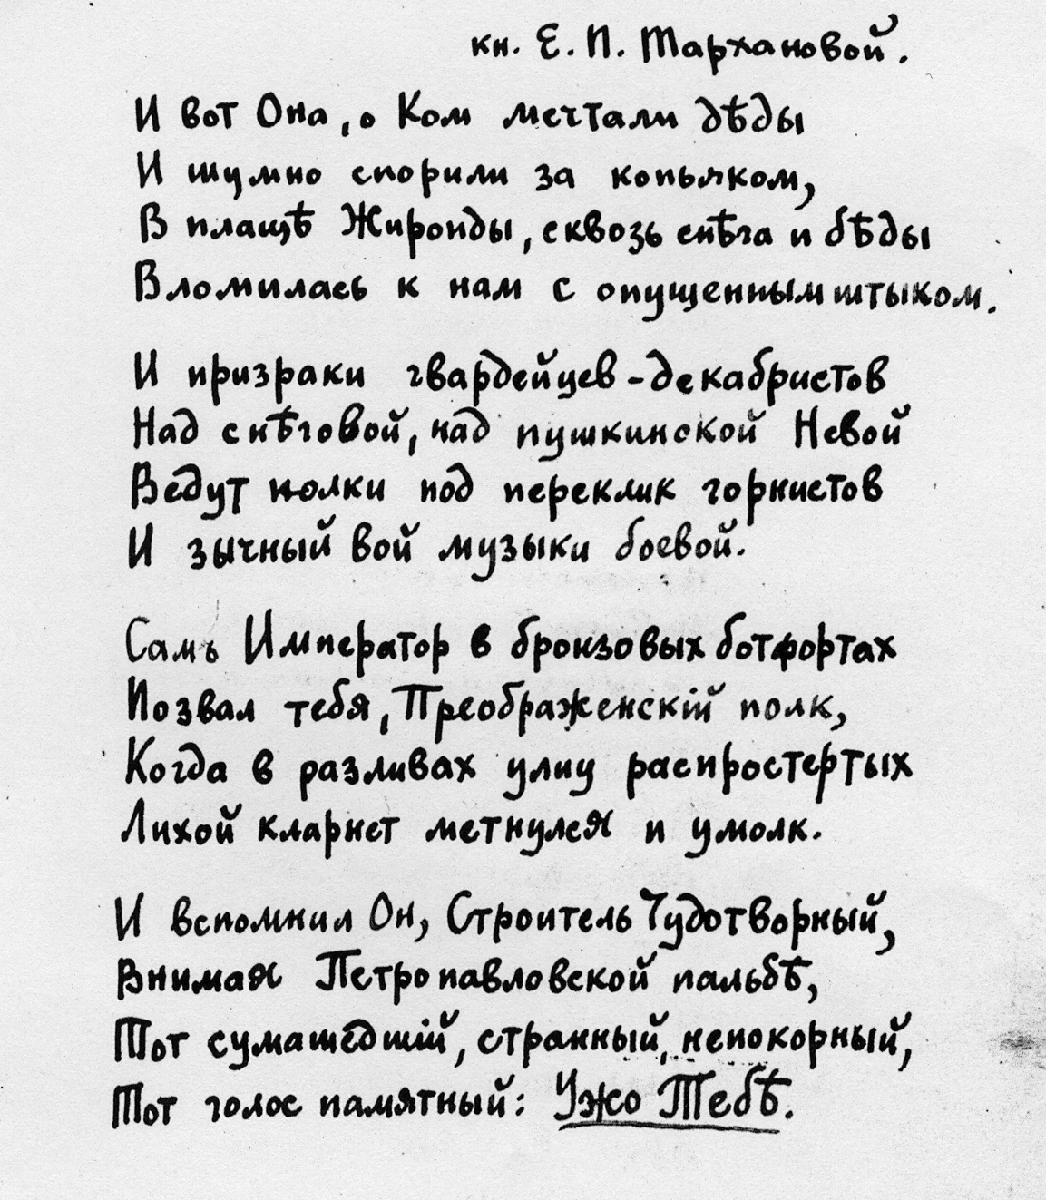 кн. Е. П. Тархановой.
И вот Она, о Ком мечтали дѣды
И шумно спорили за коньяком,
В плащѣ Жиронды, сквозь снѣга и бѣды
Вломилась к нам с опущенным штыком.
И призраки гвардейцев-декабристов
Над снѣговой, над пушкинской Невой
Ведут полки под переклик горнистов
И зычный вой музыки боевой.
Самъ Император в бронзовых ботфортах
Позвал тебя, Преображенскій полк,
Когда в разливах улиц распростертых
Лихой кларнет метнулся и умолк.
И вспомнил Он, Строитель Чудотворный,
Внимая Петропавловской пальбѣ,
Тот сумашедшій, странный, непокорный,
Тот голос памятный: Ужо Тебѣ.